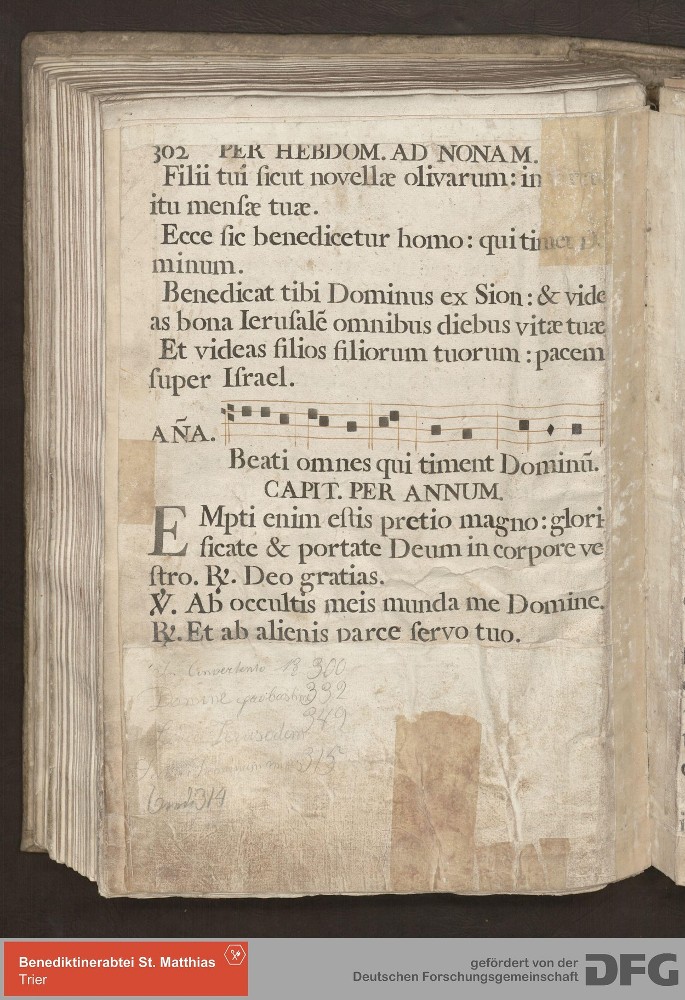 302 PER HEBDOM. AD NONAM.
Filii tui ſicut novellæ olivarum: in
itu menſæ tuæ.
Ecce ſic benedicetur homo: qui timet
minum.
Benedicat tibi Dominus ex Sion: & vide
as bona Ieruſalẽ omnibus diebus vitæ tuæ
Et videas filios filiorum tuorum: pacem
ſuper Iſrael.
AÑA.
Beati omnes qui timent Dominũ.
CAPIT. PER ANNUM.
EMpti enim eſtis pretio magno: glori-
ficate & portate Deum in corpore ve
ſtro. ℟. Deo gratias.
℣. Ab occultis meis munda me Domine.
℟. Et ab alienis parce ſervo tuo.
In Convertendo 300
Domine 332
Jerusalem 342
315
314
Benediktinerabtei St. Matthias
Trier
gefördert von der
Deutschen Forschungsgemeinschaft
DFG